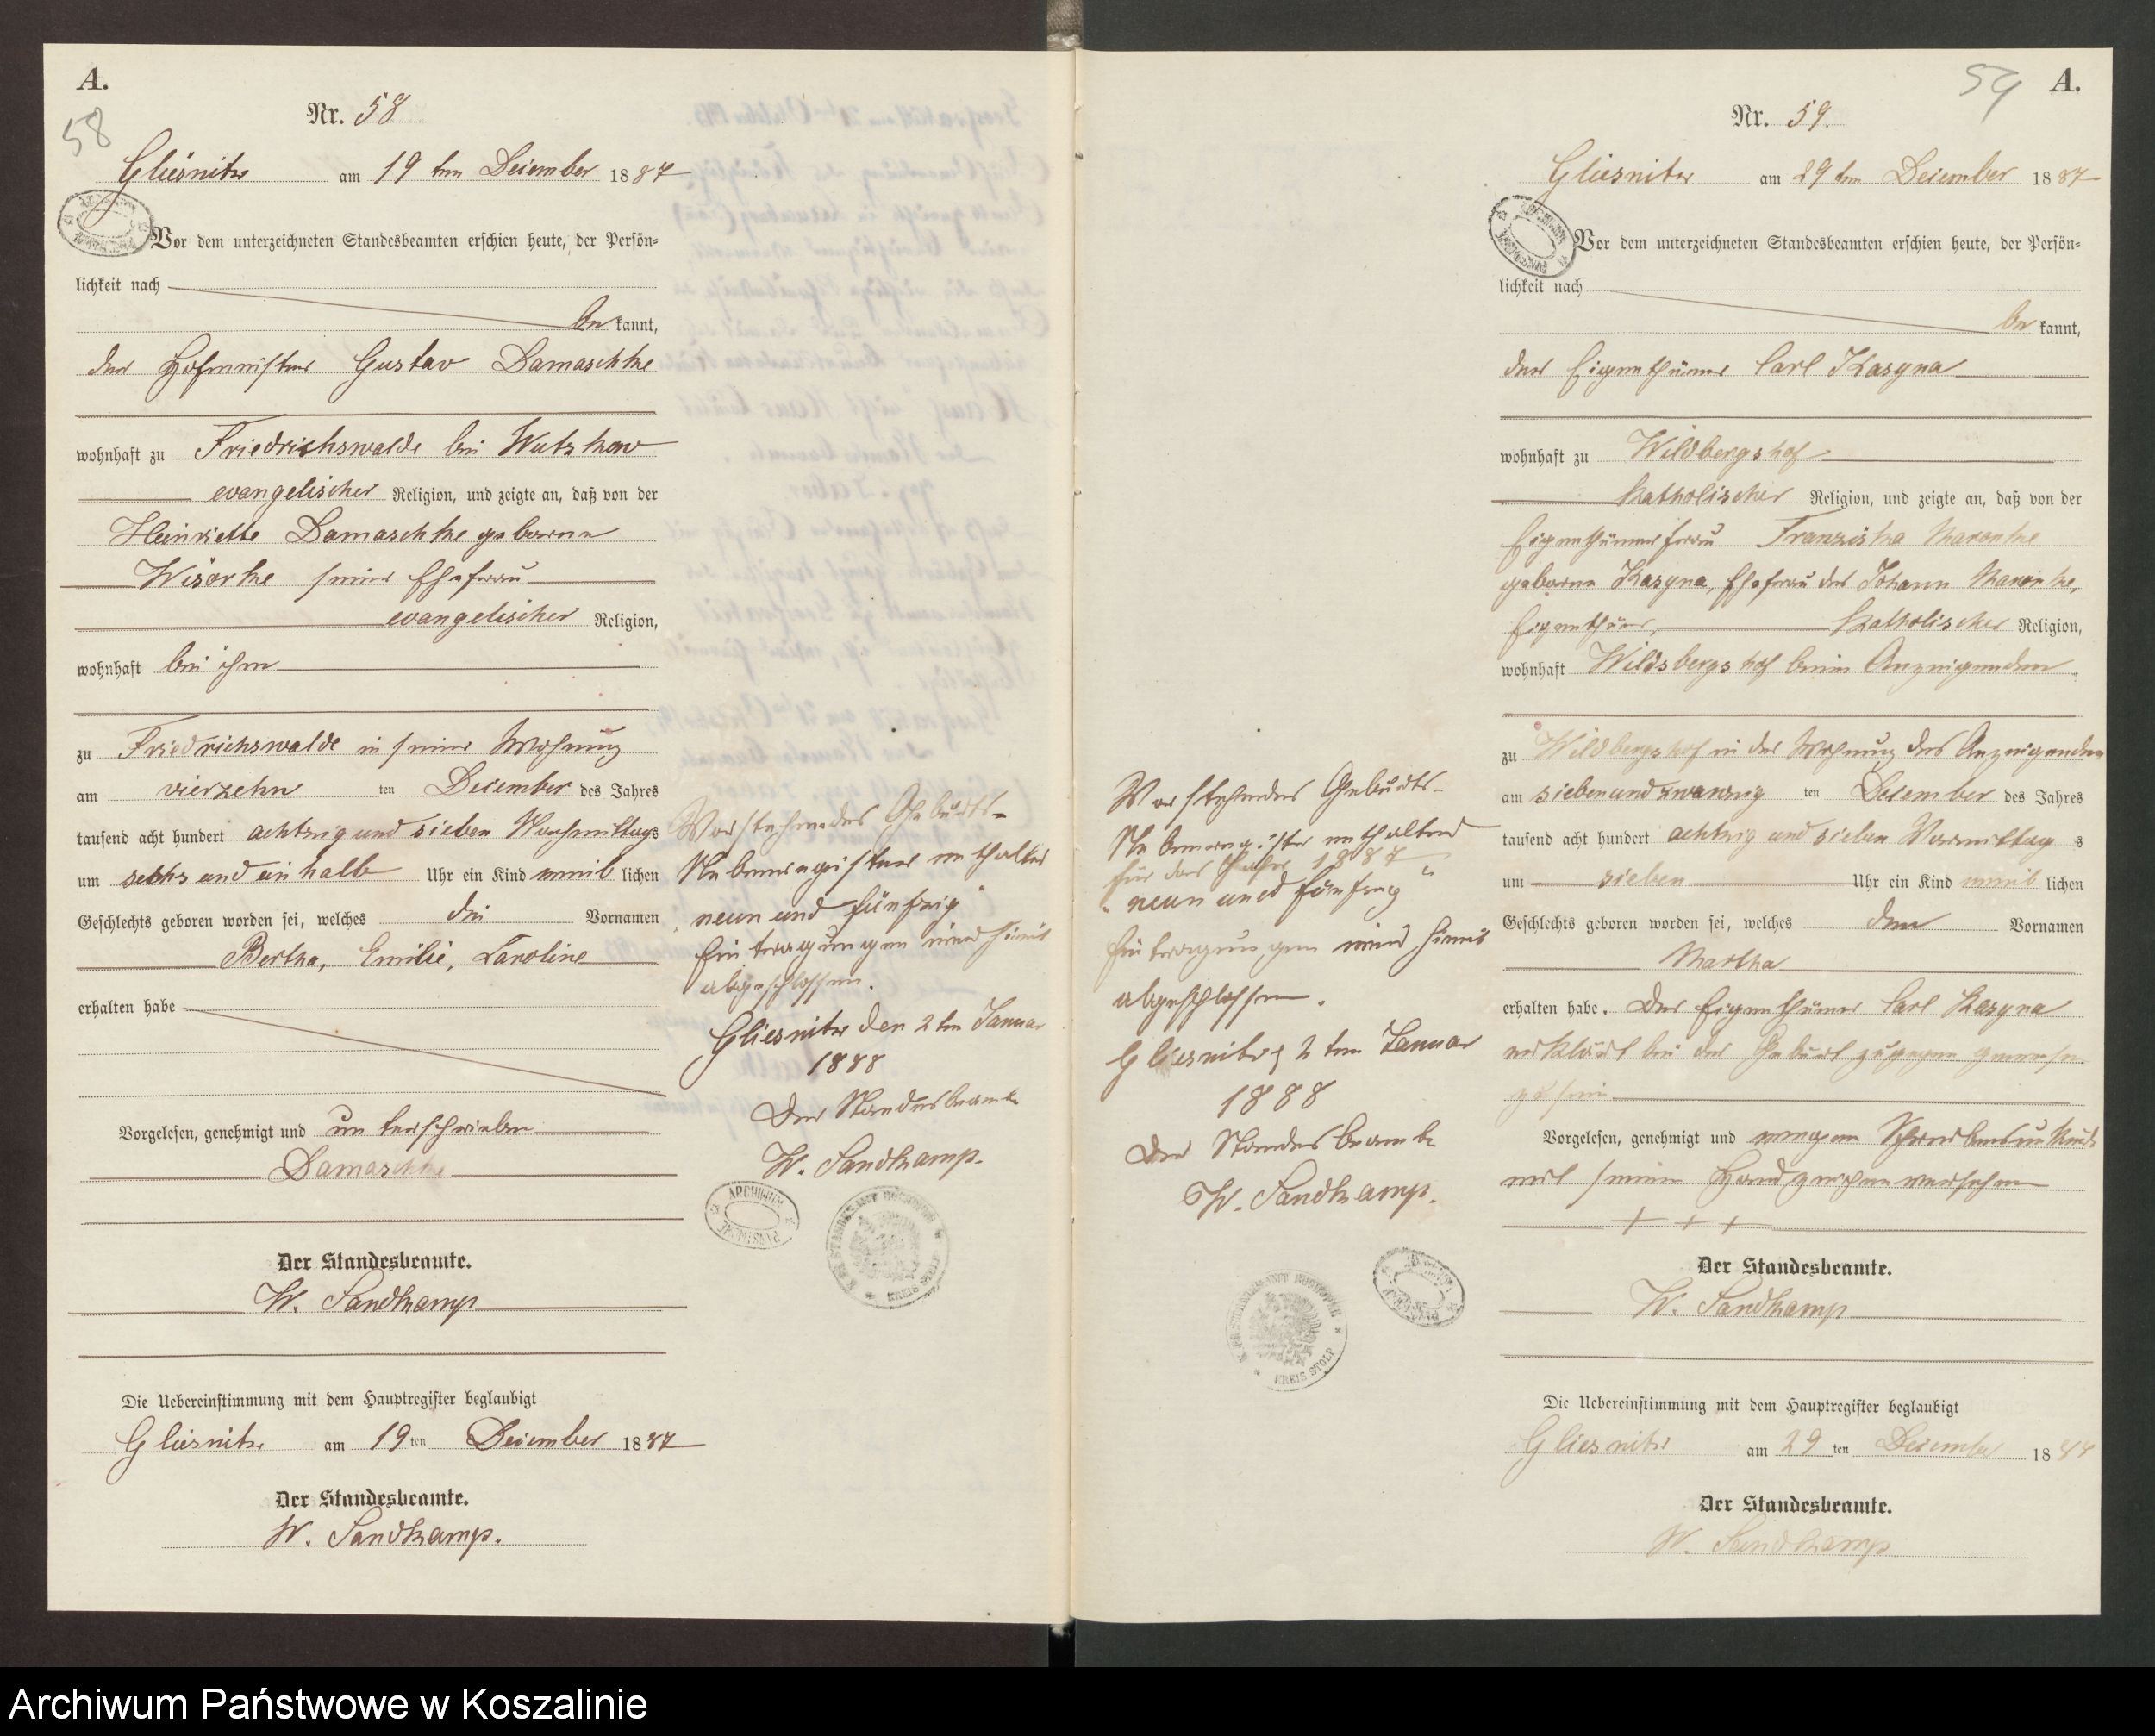 A.
58
Nr. 58
Gliesnitz am 19 ten December 1887
Vor dem unterzeichneten Standesbeamten erschien heute, der Persön=
lichkeit nach
be kannt,
der Hofmeister Gustav Damaschke
wohnhaft zu Friedrichswalde bei Wutzkow
evangelischer Religion, und zeigte an, daß von der
Heinriette Damaschke geborene
seiner Ehefrau
evangelischer Religion,
wohnhaft bei ihm
zu Friedrichswalde in seiner Wohnung
am vierzehn ten December des Jahres
tausend acht hundert achtzig und sieben Nachmittags
um sechs und ein halb Uhr ein Kind weib lichen
Geschlechts geboren worden sei, welches die Vornamen
Bertha, Emilie, Caroline
erhalten habe
Vorgelesen, genehmigt und unterschrieben
Damaschke
Der Standesbeamte.
W. Sandkamp
Die Uebereinstimmung mit dem Hauptregister beglaubigt
Gliesnitz am 19 ten December 1887
Der Standesbeamte.
W. Sandkamp.
Vorstehendes Geburts-
Nebenregister enthaltend
"neun und fünfzig"
Eintragungen wird hiermit
abgeschlossen.
Gliesnitz den 2ten Januar
1888
Der Standesbeamte
W. Sandkamp.
ARCHIWUM PAŃSTWOWE
Vorstehendes Geburts-
Nebenregister enthaltend
für das Jahr 1887
"neun und fünfzig"
Eintragungen wird hiermit
abgeschlossen.
Gliesnitz, 2ten Januar
1888
Der Standesbeamte
W. Sandkamp.
KREIS STOLP
59
A.
Nr. 59.
Gliesnitz am 29 ten December 1887
Vor dem unterzeichneten Standesbeamten erschien heute, der Persön=
lichkeit nach
be kannt,
der Eigenthümer Carl Kasyna
wohnhaft zu Wildbergshof
Katholischer Religion, und zeigte an, daß von der
Eigenthümerfrau Franziska
geborene Kasyna, Ehefrau des Johann
Eigenthümer, Katholischer Religion,
wohnhaft Wildsbergshof beim Anzeigenden
zu Wildbergshof in der Wohnung des Anzeigenden
am siebenundzwanzig ten December des Jahres
tausend acht hundert achtzig und sieben Vormittag s
um sieben Uhr ein Kind weib lichen
Geschlechts geboren worden sei, welches den Vornamen
Martha
erhalten habe. Der Eigenthümer Carl Kasyna
erklärt bei der Geburt zugegen gewesen
zu sein
Vorgelesen, genehmigt und wegen Schreibensunkunde
mit seinem Handzeichen versehen
+ + +
Der Standesbeamte.
W. Sandkamp
Die Uebereinstimmung mit dem Hauptregister beglaubigt
Gliesnitz am 29 ten December 18
Der Standesbeamte.
W. Sandkamp
Archiwum Państwowe w Koszalinie